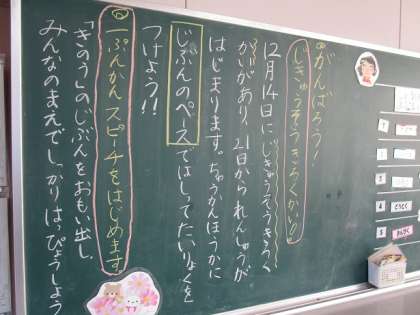 ◎がんばろう!
じきゅうそうきろくかい!!
12月14日にじきゅうそうきろく
かいがあり、21日かられんしゅうが
はじまります。ちゅうかんほうかに
じぶんのペースではしってたいりょくを
つけよう!!
一ぷんかんスピーチをはじめます。
「きのう」のじぶんをおもい出し、
みんなのまえでしっかりはっぴょうしよう